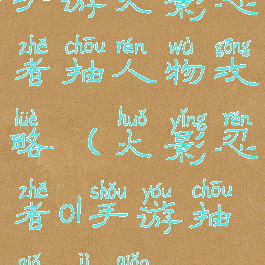 手游火影忍
zhě chōu rén wù gōng
者抽人物攻
lüè huǒ yǐng rěn
略(火影忍
zhě shǒu yóu chōu
者ol手游抽